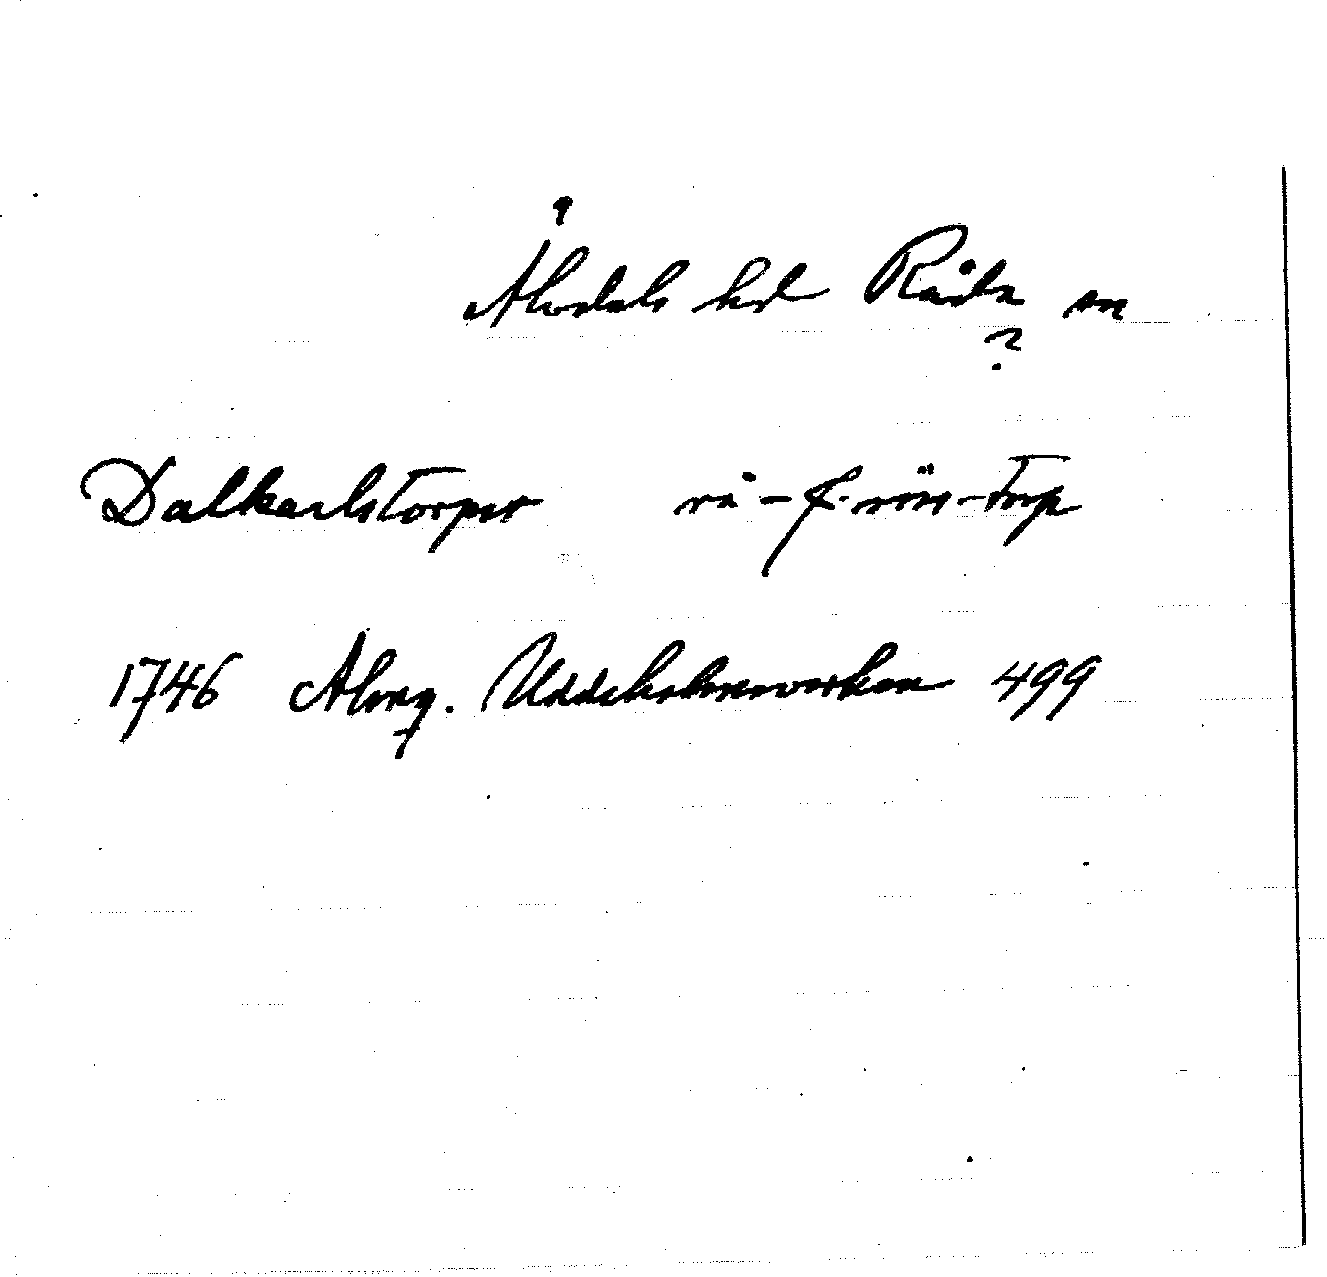 Älvdals hd Råda sn
?
Dalkarlstorpet rå- o. rös-torp
1746 Almq. Uddeholmsverken 499